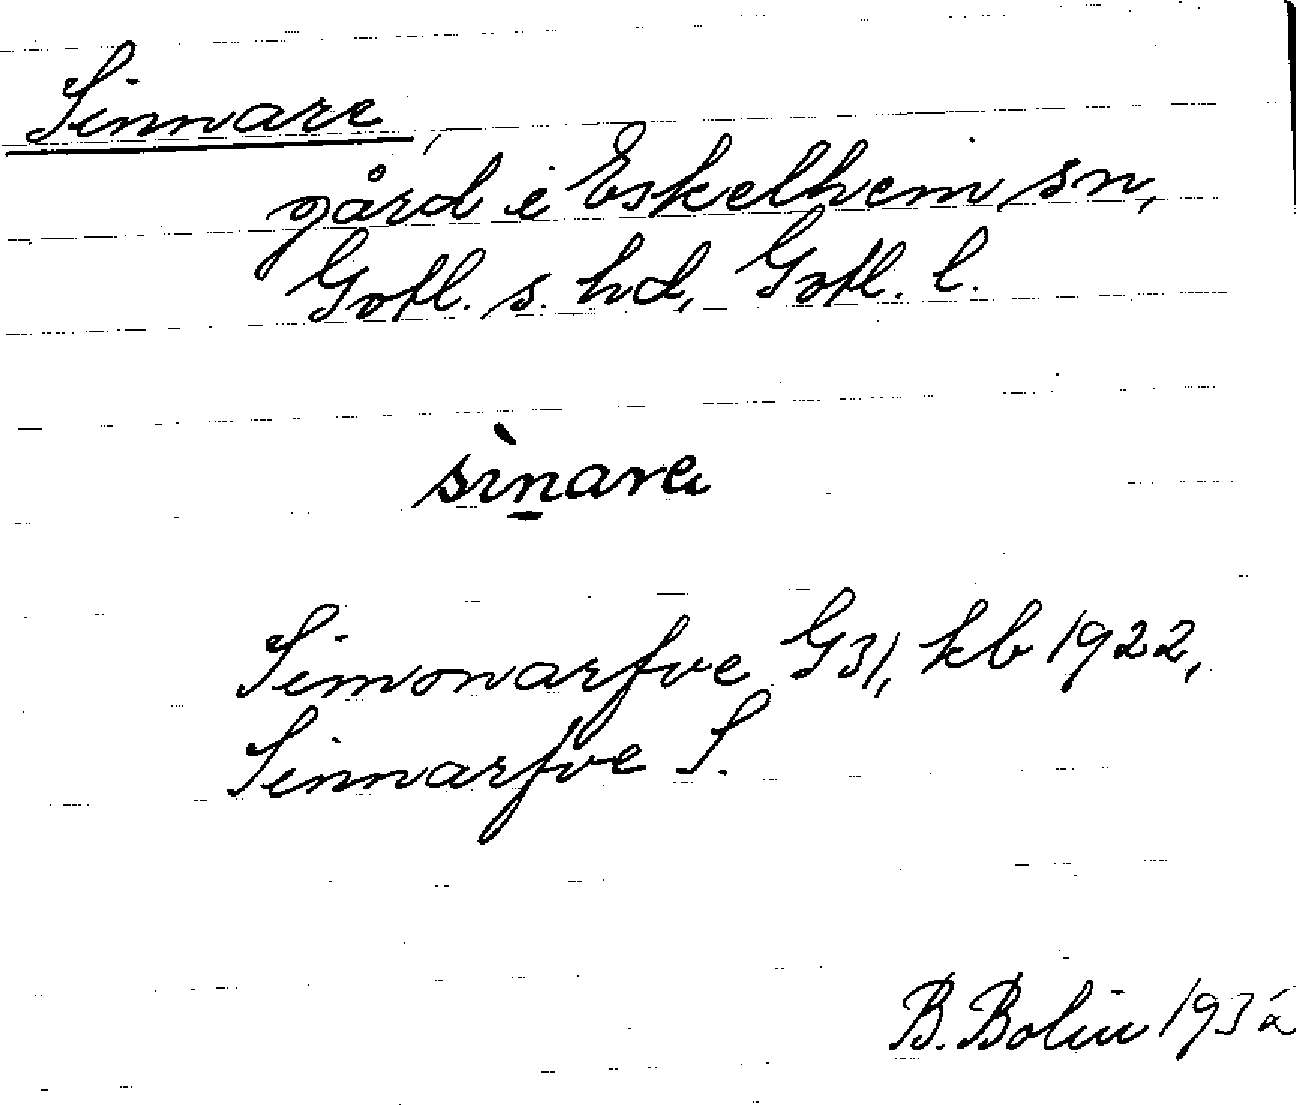 Sinnare,
gård i Eskelhem sn,
Gotl. s. hd, Gotl. l.
sı̀n̠are
Simonarfve G31, kb 1922,
Sinnarfve S.
B. Bolin 1932